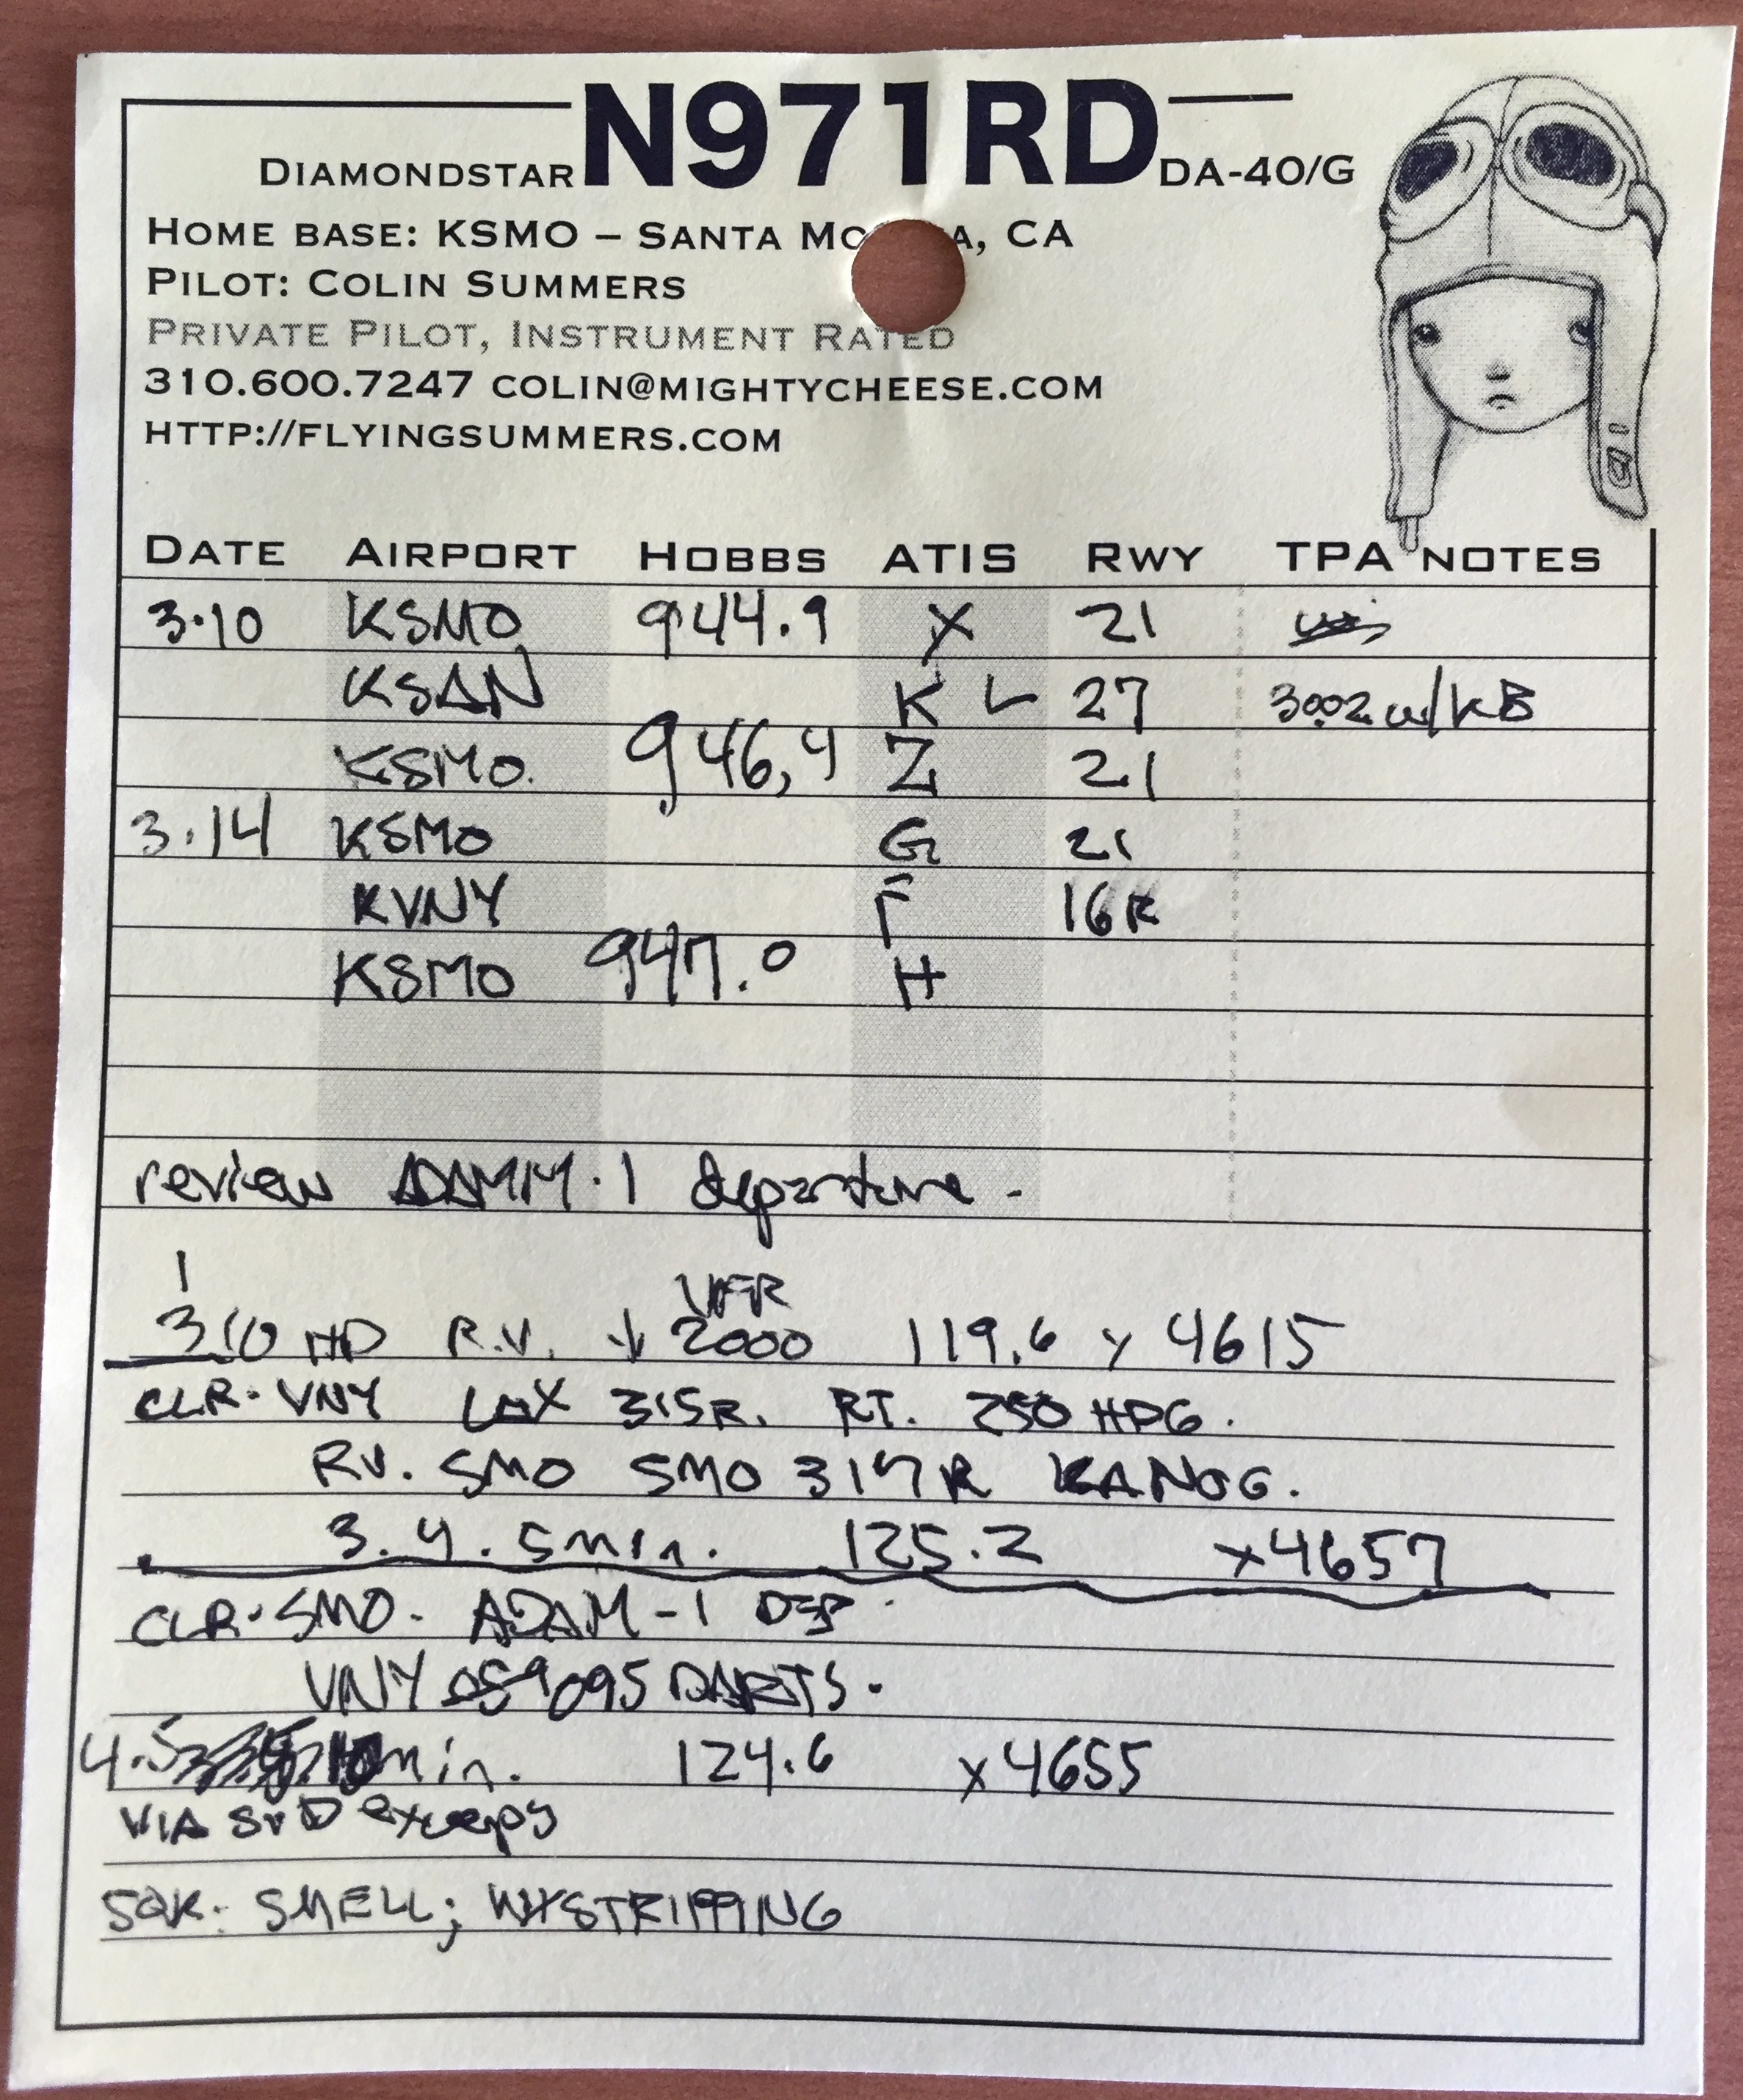 DIAMONDSTAR N971RD DA-40/G
HOME BASE: KSMO – SANTA MO A, CA
PILOT: COLIN SUMMERS
PRIVATE PILOT, INSTRUMENT RATED
310.600.7247 COLIN@MIGHTYCHEESE.COM
HTTP://FLYINGSUMMERS.COM
DATE AIRPORT HOBBS ATIS RWY TPA NOTES
3.10 KSMO 944.9 X 21
KSAN K 27 3002 w/KB
KSMO. 946,4 Z 21
3.14 KSMO G 21
KVNY F 16R
KSMO 947.0 H
review ADAMM.1 departure -
1 VFR
310 HD R.V. ↓ 2000 119.6 4615
CLR. VNY LAX 315R. RT. 250 HDG.
RV. SMO SMO 317R KANOG.
3.4.5min. 125.2 x4657
CLR. SMO. ADAM-1 DEP.
VNY 095 DARTS.
4.5 min. 124.6 x4655
VIA SMO
SQK: SMELL; WXSTRIPPING